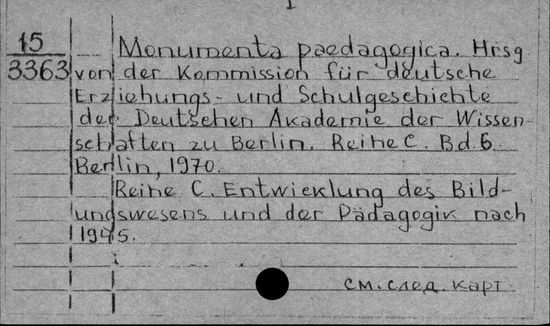 1
15
3363
Monumenta paedagogica. Hrsg
von der Kommission für deutsche
Erziehungs- und Schulgeschichte
der Deutschen Akademie der Wissen-
schaften zu Berlin. Reihe C. Bd. 6.
Berlin, 1970.
Reihe C. Entwicklung des Bild-
ungswesens und der Pädagogik nach
1945.
см. след. карт